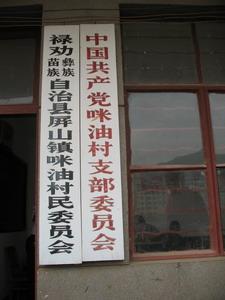 中国共产党咪油村支部委员会
禄劝彝族苗族自治县屏山镇咪油村民委员会